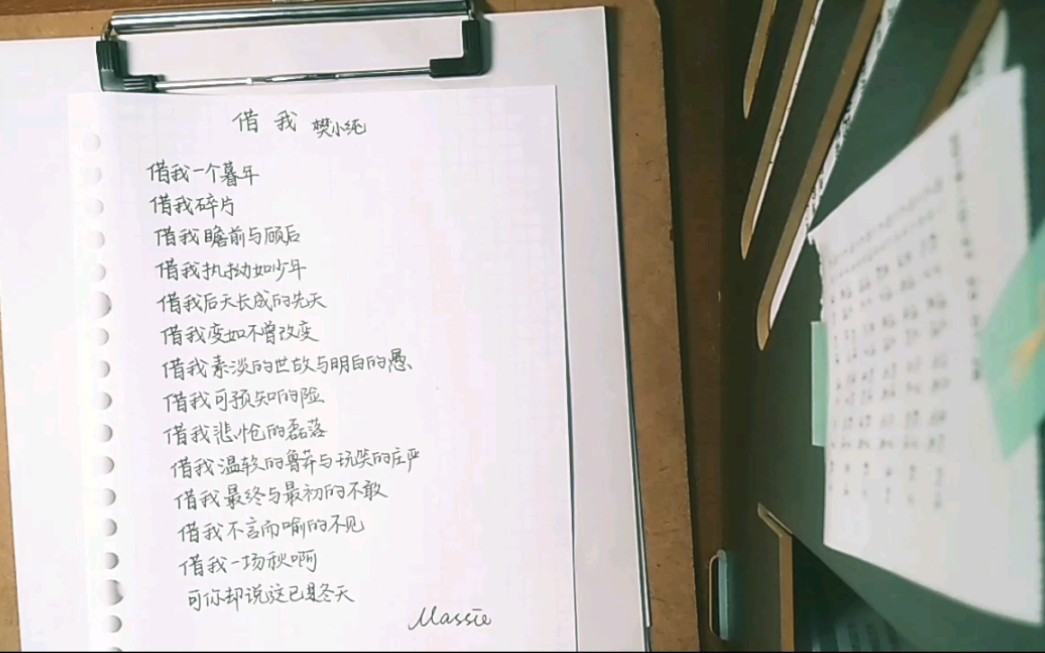 借我 樊小纯
借我一个暮年
借我碎片
借我瞻前与顾后
借我执拗如少年
借我后天长成的先天
借我变如不曾改变
借我素淡的世故与明白的愚
借我可预知的险
借我悲怆的磊落
借我温软的鲁莽与玩笑的庄严
借我最终与最初的不敢
借我不言而喻的不见
借我一场秋啊
可你却说这已是冬天
Massie